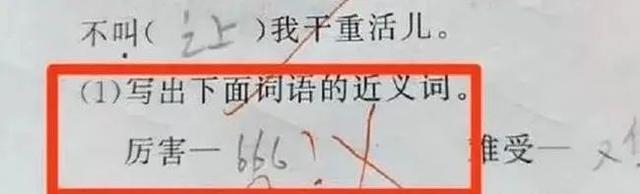 不叫(让)我干重活儿。
(1)写出下面词语的近义词。
厉害—666 难受—